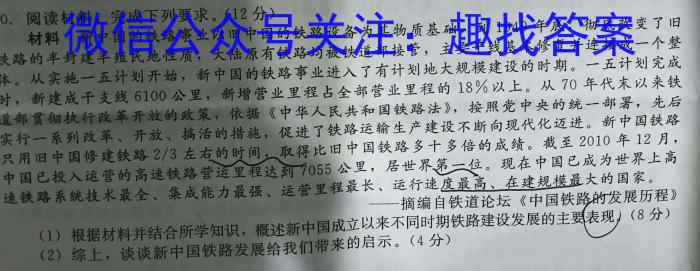 0. 阅读材料，完成下列要求。(12分)
微信公众号关注：趣找答案
材料
铁路的半封建半殖民地性质，大陆原有铁路均被铁道部接管，
一个整
体。从实施一五计划开始，新中国的铁路事业进入了有计划地大规模建设的时期。一五计划完成
时，新建成干支线6100公里，新增营业里程占全部营业里程的18%以上。从70年代末以来铁
道部贯彻执行改革开放的政策，依据《中华人民共和国铁路法》，按照党中央的统一部署，先后
实行一系列改革、开放、搞活的措施，促进了铁路运输生产建设不断向现代化迈进。新中国铁路
只用旧中国修建铁路2/3左右的时间，取得比旧中国铁路多十多倍的成绩。截至2010年12月，
中国已投入运营的高速铁路营运里程达到7055公里，居世界第一位。现在中国已成为世界上高
速铁路系统技术最全、集成能力最强、运营里程最长、运行速度最高、在建规模最大的国家。
——摘编自铁道论坛《中国铁路的发展历程》
(1) 根据材料并结合所学知识，概述新中国成立以来不同时期铁路建设发展的主要表现。(8分)
(2) 综上，谈谈新中国铁路发展给我们带来的启示。(4分)